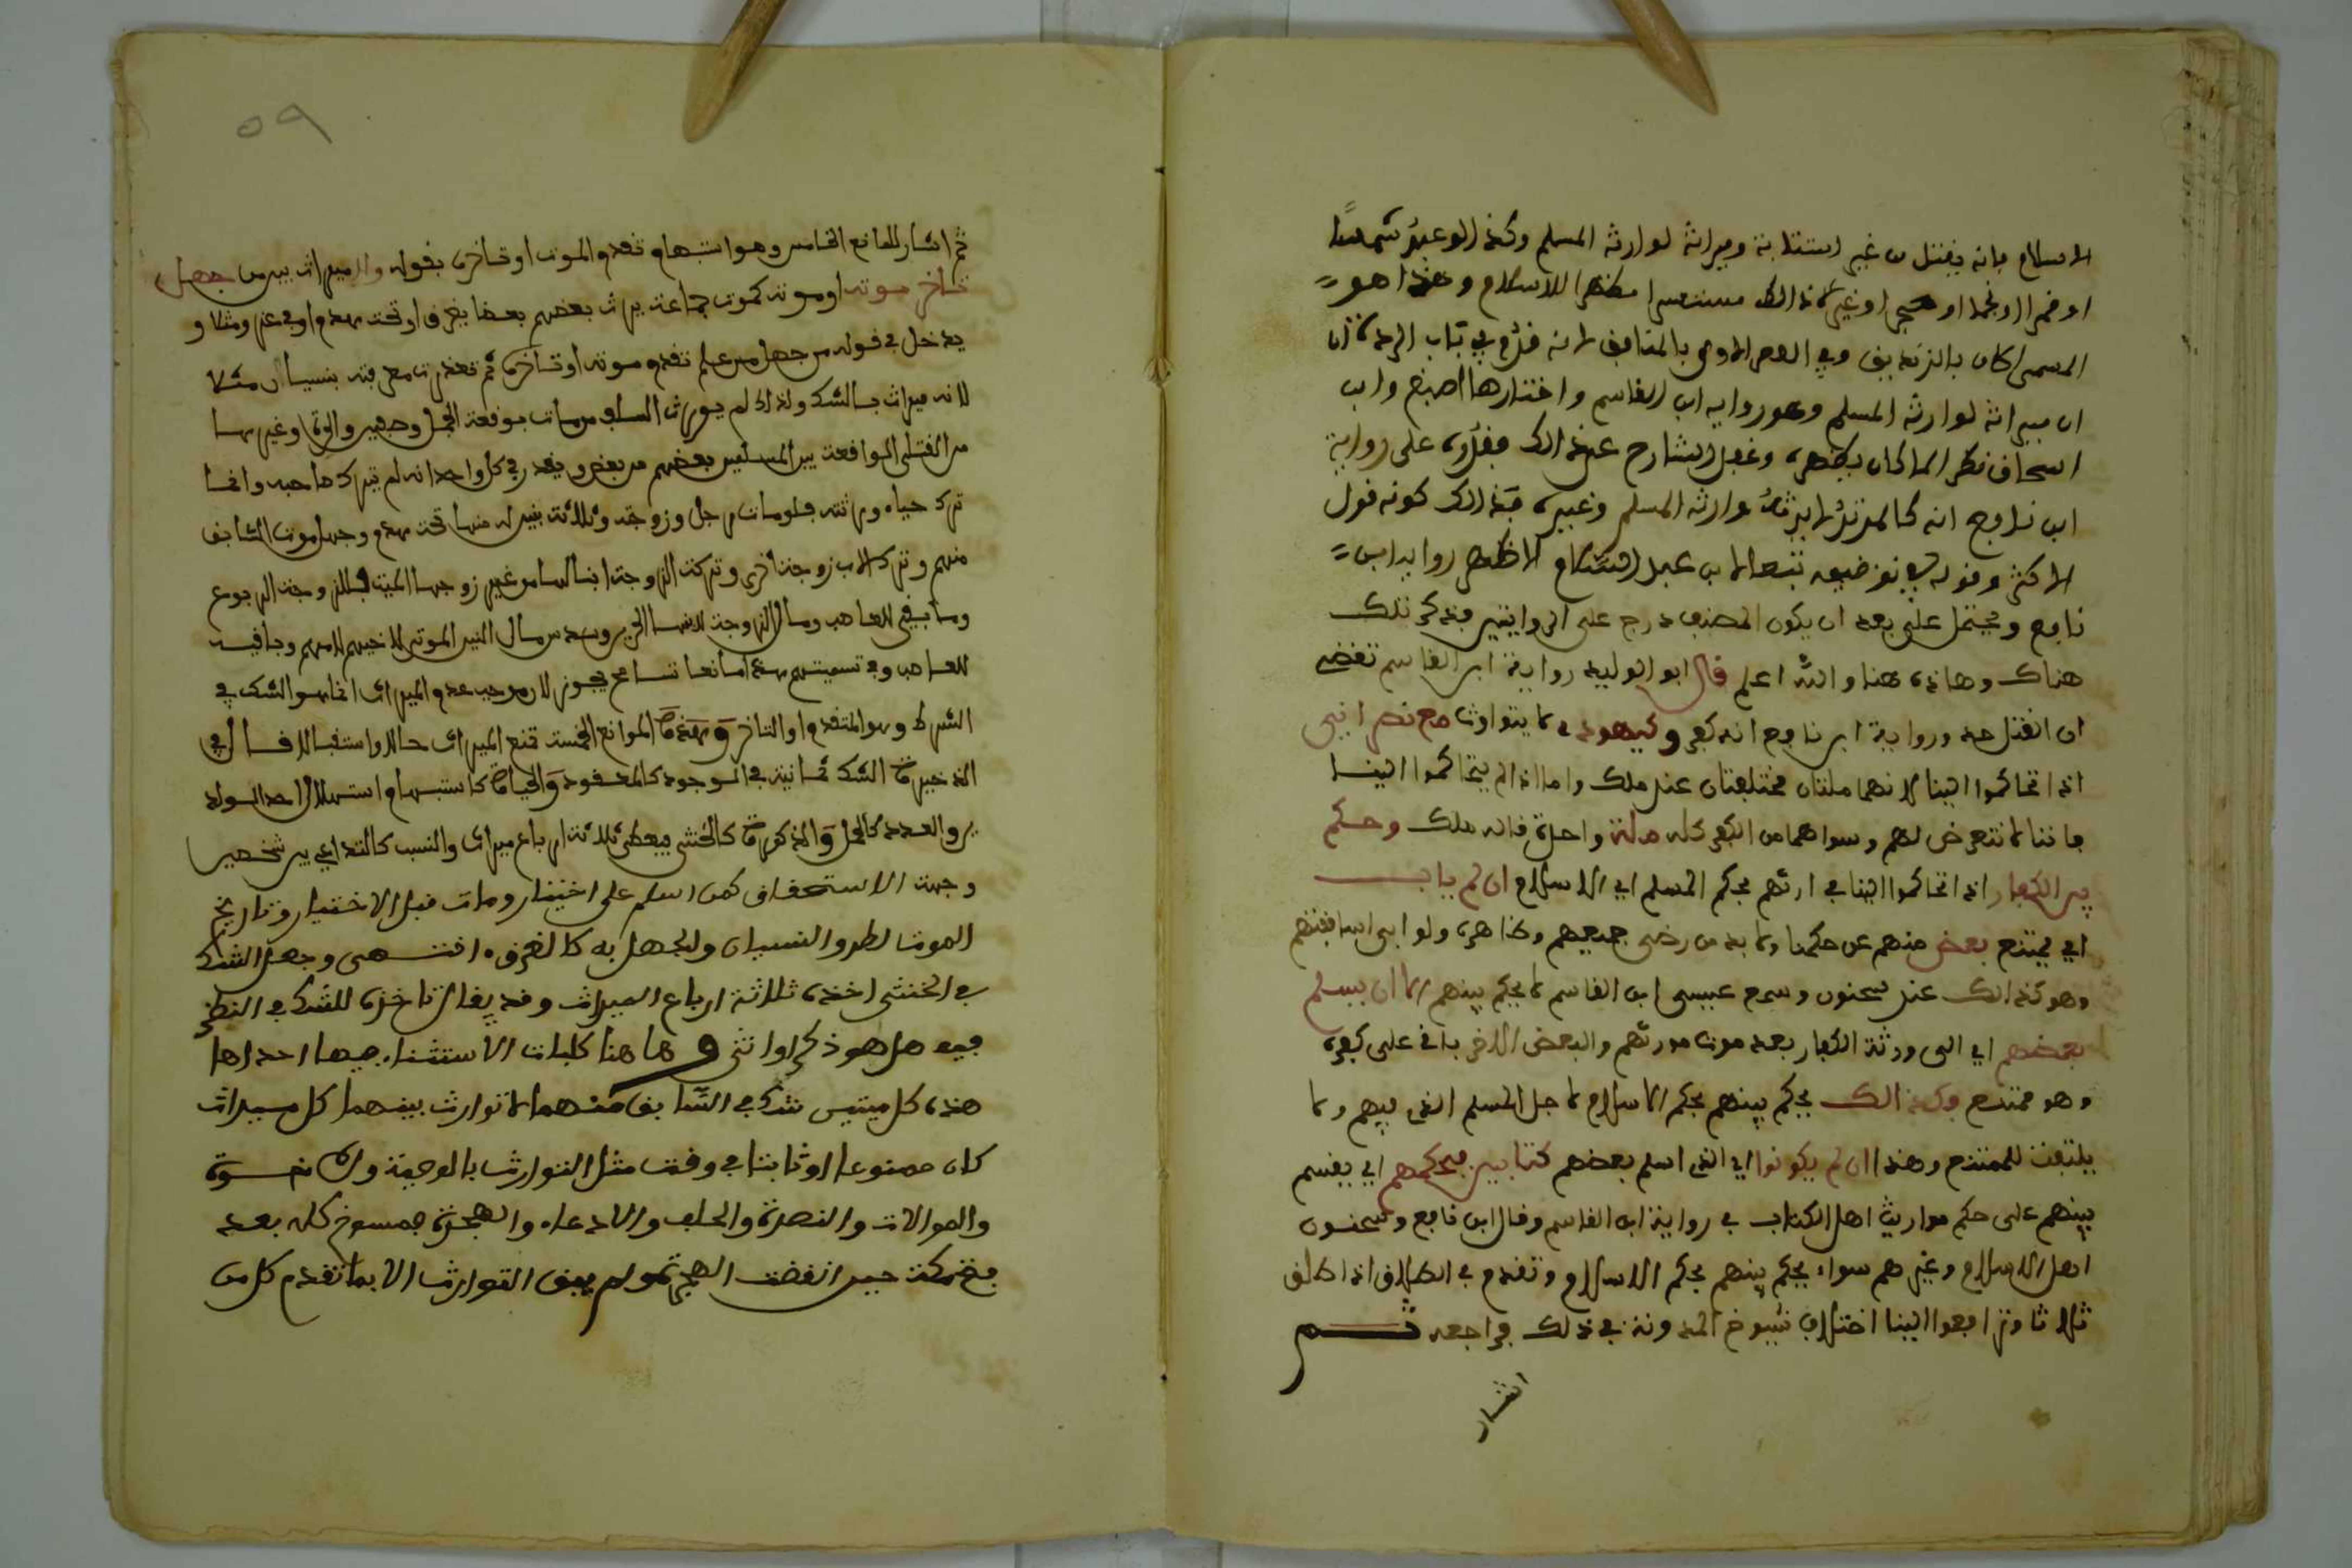 الاسلام فانه يقتل من غير استتابة وميراثه لوارثه المسلم وكذا لو عبد شمسا
او قمرا او نجما او حجرا او غير ذالك مستسرا مظهرا للاسلام وهذا هو
المسمى كان بالزنديق وفي العصر الاول بالمنافق لانه قدم في باب الردة
ان ميراثه لوارثه المسلم وهو رواية ابن القاسم واختارها اصبغ وابـ
اسحاق نظرا لما كان يظهره وغفل الشارح عن ذالك فقرره على رواية
ابن نافع انه كالمرتد لا يرثه وارثه المسلم وغيره كونه قول
الاكثر وقوله في توضيحه تبعا لابن عبد السلام الاظهر رواية ابن
نافع ويحتمل على بعد ان يكون المصنف درج على الروايتين فذكر تلك
هناك وهاذه هنا والله اعلم قال ابو الوليد رواية ابن القاسم تقضي
ان القتل حد ورواية ابن نافع انه كفر وكيهودي لا يتوارث مع نصراني
اذا تحاكموا الينا لانهما ملتان مختلفتان عند ملك واما اذا لم يتحاكموا الينا
فاننا لا نتعرض لهم وسواهما من الكفر كله ملة واحدة قاله ملك وحكم
بين الكفار اذا تحاكموا الينا في ارثهم بحكم المسلم اي الاسلام ان لم ياب
اي يمتنع بعض منهم عن حكمنا ولا بد من رضى جميعهم وظاهره ولو ابى اساقفتهم
وهو كذالك عند سحنون وسمع عيسى ابن القاسم لا يحكم بينهم الا ان يسلم
بعضهم اي الى ورثة الكفار بعد موت مورثهم والبعض الاخر باق على كفره
وهو ممتنع وكذالك يحكم بينهم بحكم الاسلام لاجل المسلم الذي فيهم ولا
يلتفت للممتنع وهذا ان لم يكونوا اي الذي اسلم بعضهم كتابيين فبحكمهم اي يقسم
بينهم على حكم مواريث اهل الكتاب في رواية ابن القاسم وقال ابن نافع وسحنون
اهل الاسلام وغيرهم سواء يحكم بينهم بحكم الاسلام وتقدم في الطلاق اذا طلق
ثلاثا وترافعوا الينا اختلاف شيوخ المدونة في ذلك فراجعه ثم
اشار
٥٩
ثم اشار للمانع الخامس وهو استبهام تقدم الموت او تاخره بقوله ولا ميراث بين من جهل
تاخر موته او موته كموت جماعة يرث بعضهم بعضا بغرق او تحت هدم او في غير ومثلا و
يدخل في قوله من جهل من علم تقدم موته او تاخره ثم تعذرت معرفته بنسيان مثلا
لانه ميراث بالشك ولذلك لم يورث السلف من مات بوقعة الجمل وصفين والحرة وغيرها
من القتلى الواقعة بين المسلمين بعضهم من بعض ويقدر في كل واحد انه لم يترك صاحبه وانما
ترك حياه ورثته فلو مات رجل وزوجته وثلاثة بنين له منها تحت هدم وجهل موت السابق
منهم وترك الاب زوجة اخرى وتركت الزوجة ابنا لها من غير زوجها الميت فللزوجة الربع
وما بقي للعاصب ومال الزوجة لابنها الحي وسدس مال البنين الموتى لاخيهم لامهم وباقيه
للعاصب وفي تسميتهم هذا مانعا تسامح يجوز لان موجب عدم الميراث انما هو الشك في
الشرط وهو المتقدم او التاخر وهذه الموانع الخمسة تمنع الميراث حالا واستقبالا قال في
الذخيرة الشك ثمانية في الموجود كالمفقود والحياة كاستبهام استهلال احد المولد
ين والعدد كالحمل والذكورة كالخنثى فيعطى ثلاثة ارباع ميراث والنسب كالتداعي بين شخصين
وجهة الاستحقاق كمن اسلم على اختين ومات قبل الاختيار وتاريخ
الموت لطرو النسيان والجهل به كالغرق انتهى وجعل الشك
في الخنثى اخذه ثلاثة ارباع الميراث وقد يقال تاخره للشك في النظر
فيه هل هو ذكر او انثى وها هنا كليات الاستثناء فيها احداها
هذه كل ميتين شك في السابق منهما لا توارث بينهما كل ميراث
كان ممنوعا او ثابتا في وقت مثل التوارث بالوصية وان نسوة
والموالات والنصرة والحلف والادعاء والهجرة منسوخ كله بعد
فتح مكة حين انقضت الهجرة ولم يبق التوارث الا بما تقدم كل من